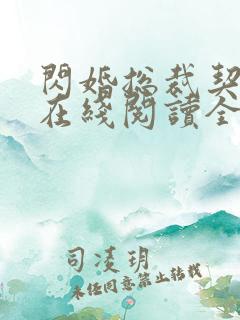 閃婚总裁契
在綫閱讀全
司凌玥
未经同意禁止转载